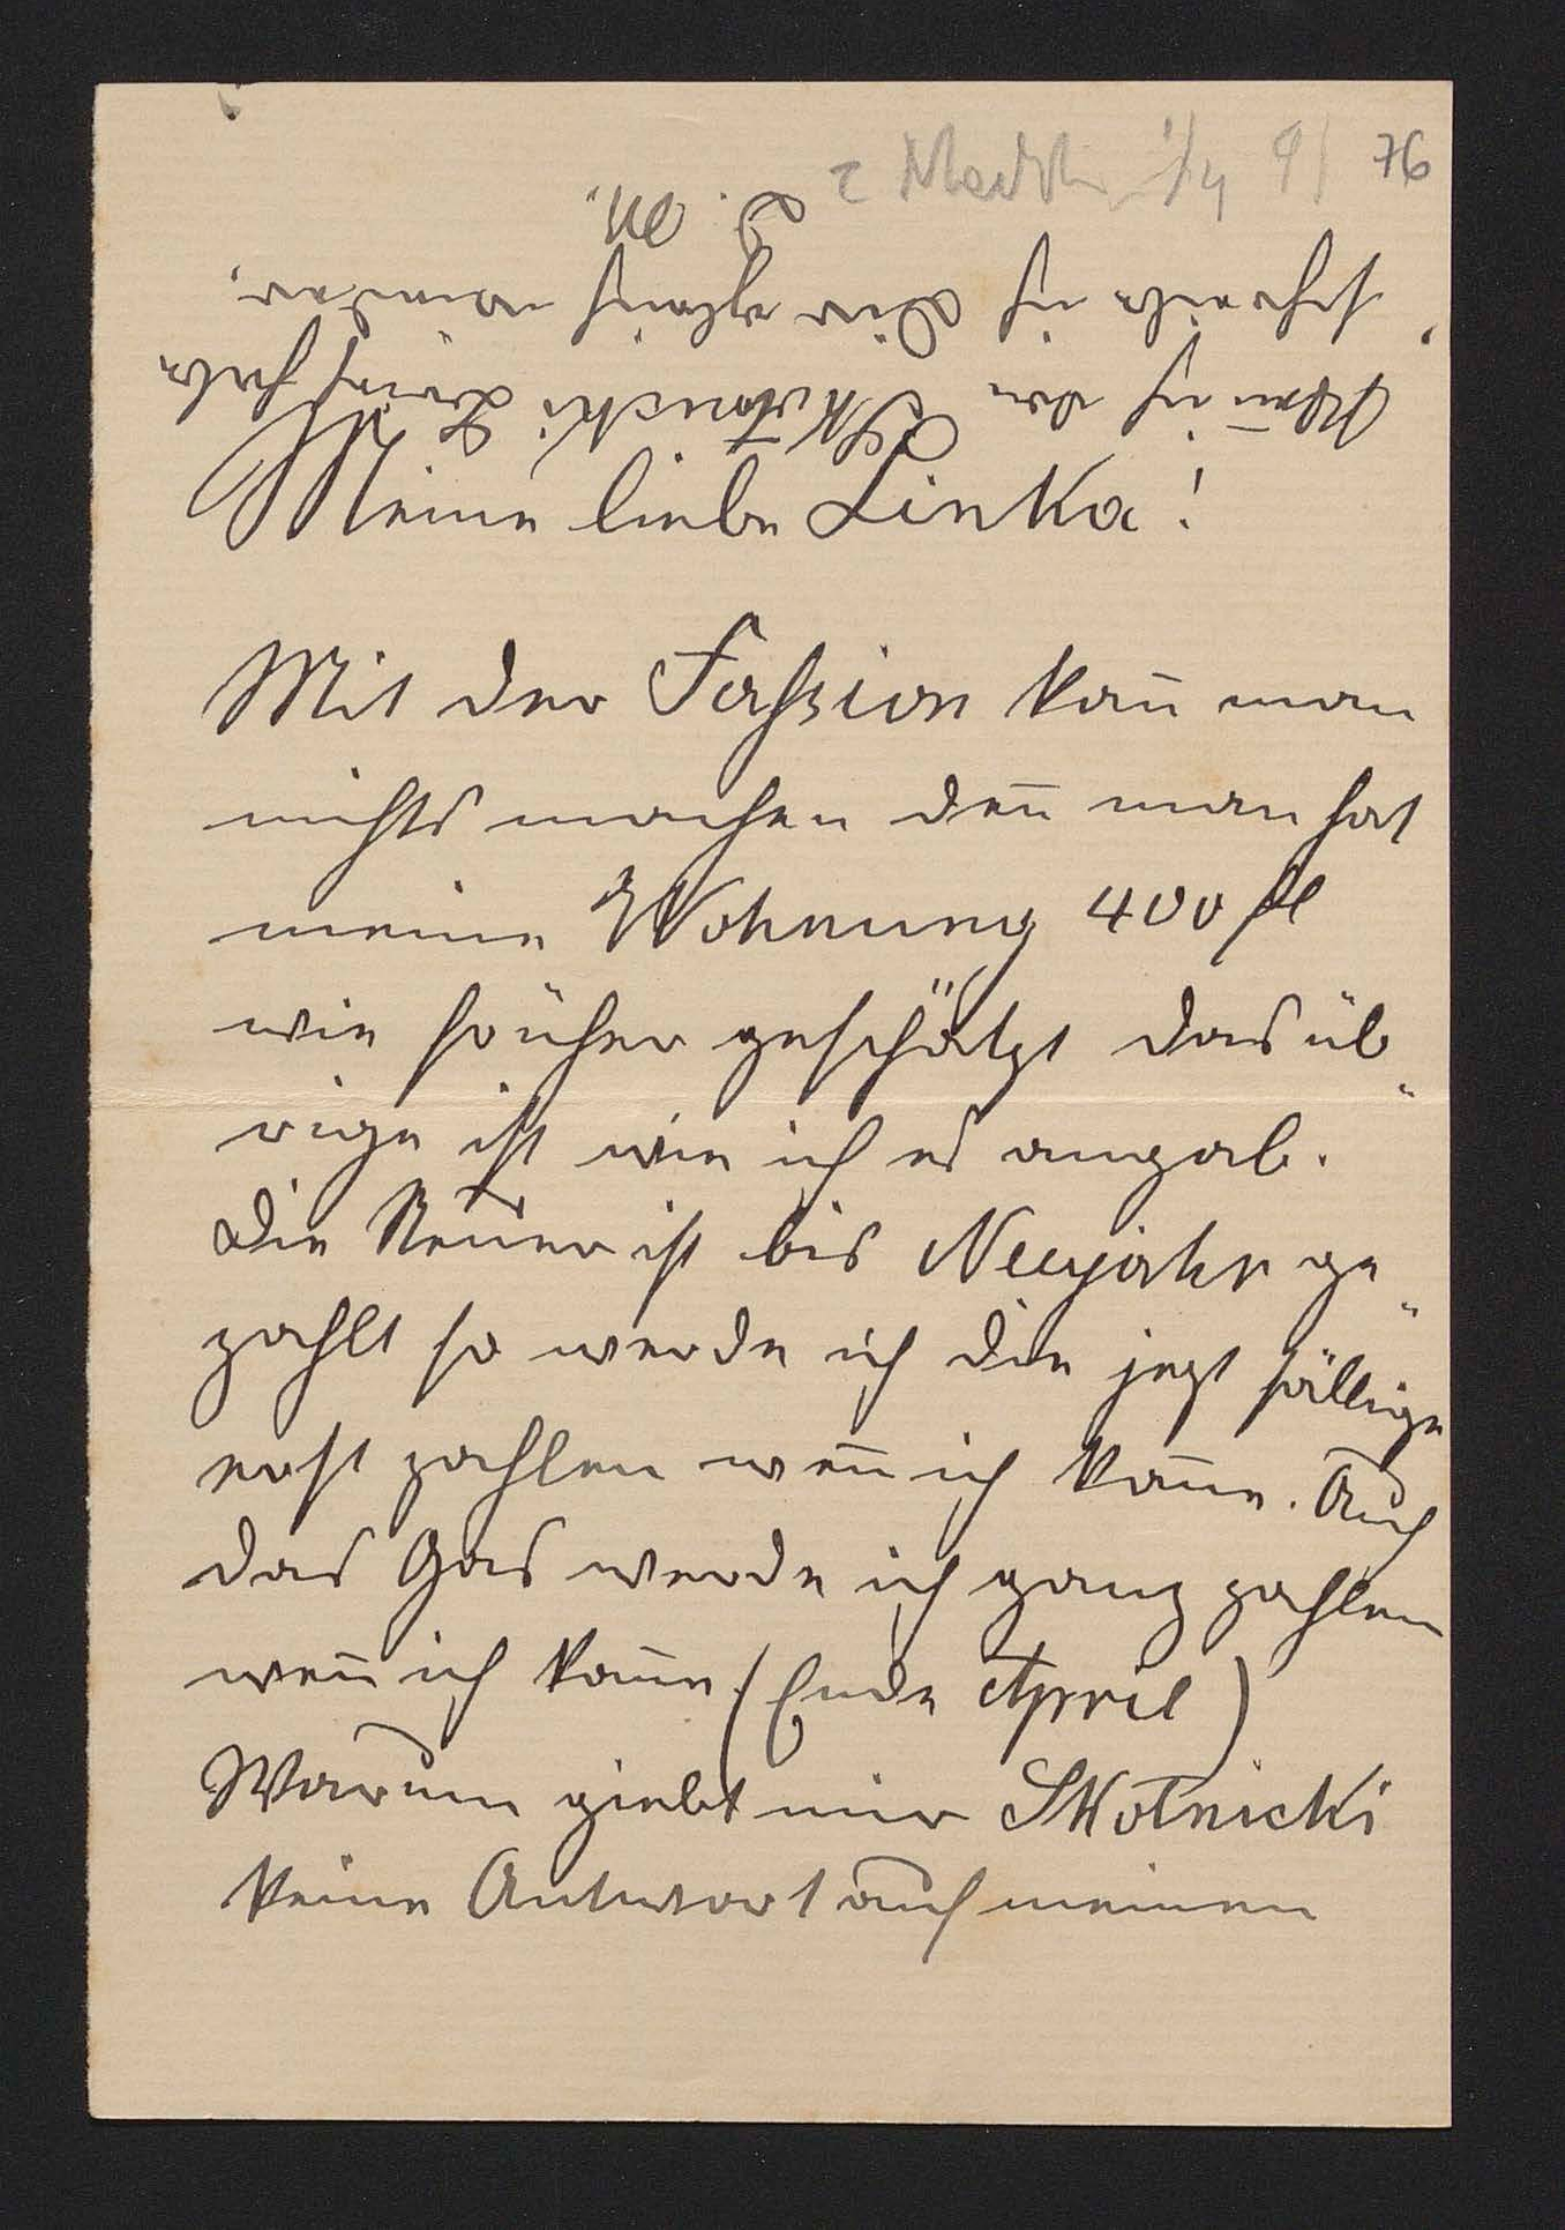 76
Meine liebe Linka!
Mit der Fassion kañ man
nichts machen deñ man hat
meine Wohnung 400 fl
wie früher geschätzt das üb„
rige ist wie ich es angab.
Die Steuer ist bis Neujahr ge„
zahlt so werde ich die jezt fällige
erst zahlen weñ ich kañe. Auch
das Gas werde ich ganz zahlen
weñ ich kañe (Ende April)
Warum giebt mir Skotnicki
keine Antwort auf meinen
Weñ ich den Skotnicki Brief habe
schreibe ich Dir gleich wieder.
D. M.